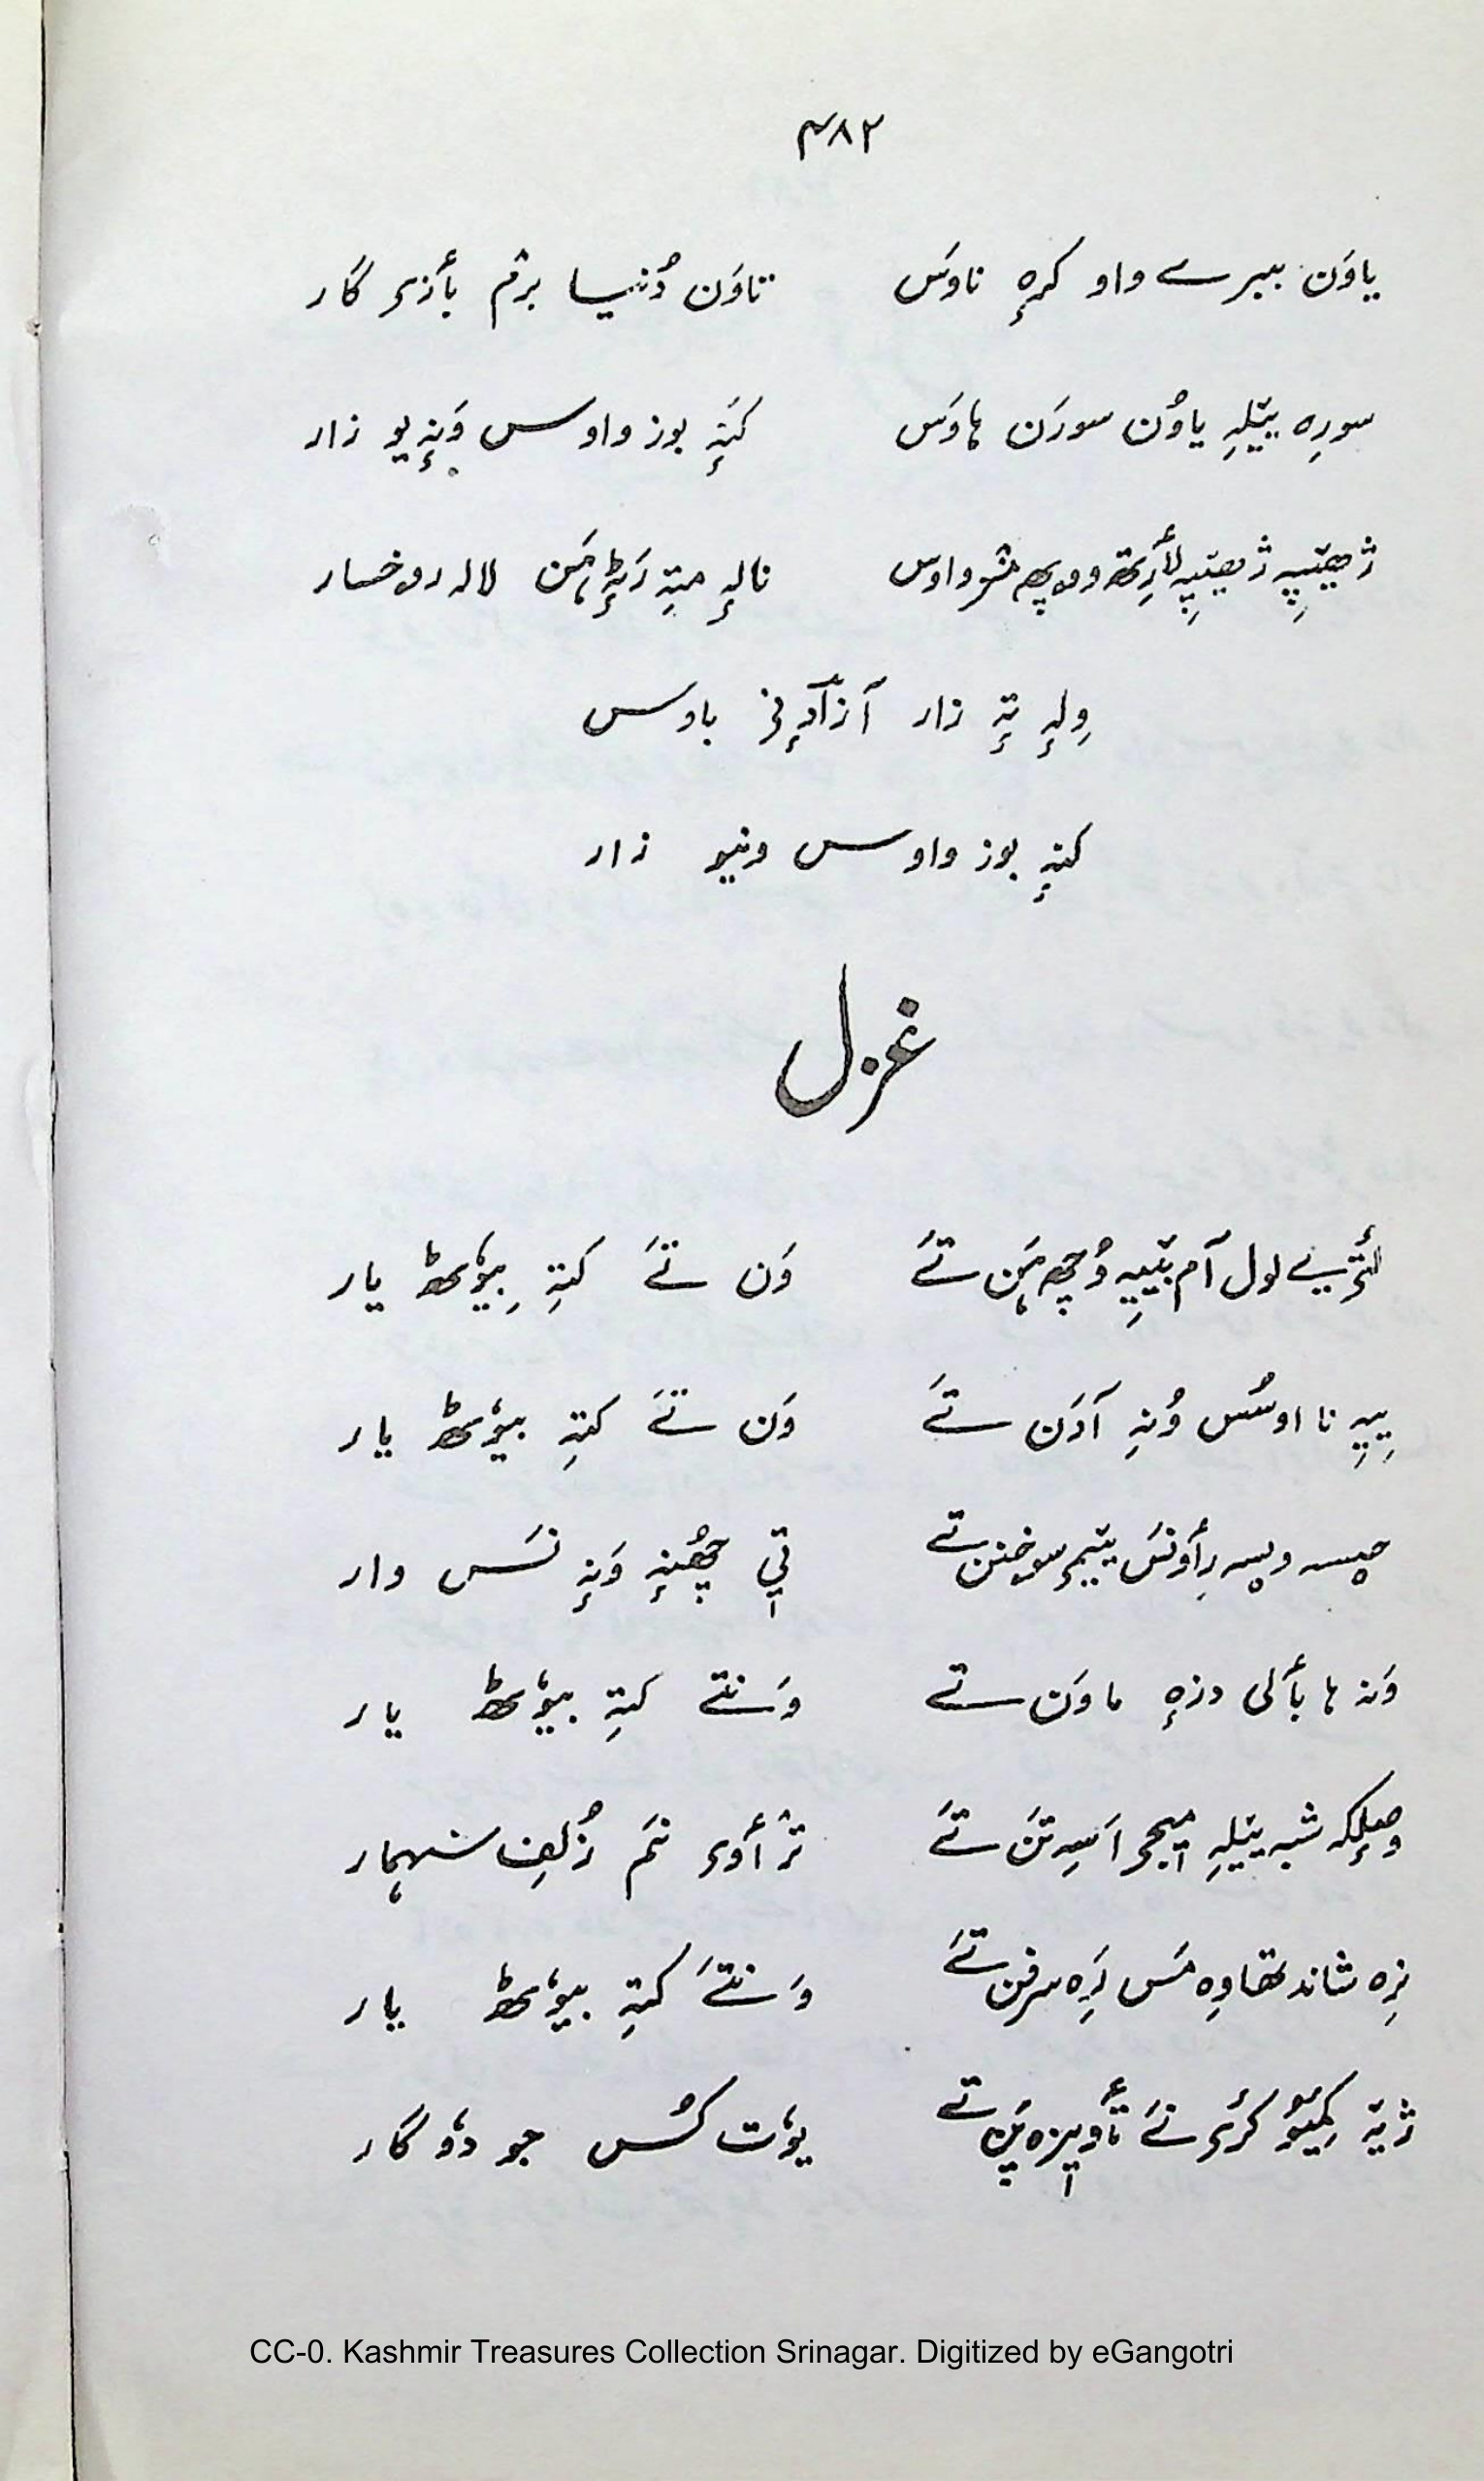 ۴۸۲
یاوَن ببرے واو کرٕہ ناوَس تاوَن دُنیا برٛم بأزی گار
سورِہ ییٚلہِ یاوُن سورَن ہاوَس کَنہٕ بوز واوس وَنہٕ یو زار
لأرِتھ نالہٕ متہِ رَٹہٕ ہَن لالہ روخسار
وِلہٕ تہٕ زار آزاد باوس
کنہٕ بوز واوس ونیو زار
غزل
لول آم ییٚیہِ وُچھ ہَن تَے وَن تَے کتہِ بیوٗٹھ یار
ییہِ نا اوسُس وُنہِ آدَن تَے وَن تَے کتہِ بیوٗٹھ یار
ویسہ سوخنن تے تی چھُنہٕ وَنہٕ نَس وار
وَنہ ہا بألی دزٕہ ماوَن تے وَنتے کتہِ بیوٗٹھ یار
شبہ ییٚلہِ اَسہِ تَن تَے ترٛأوی نَم زُلفِ شہمار
شاند تھاوِہ مَس تَے وَنتَے کتہِ بیوٗٹھ یار
ژیٚہ کٔری نَے تأویزہ پَن تے یوٗت کُس جو دوٗ گار
CC-0. Kashmir Treasures Collection Srinagar. Digitized by eGangotri